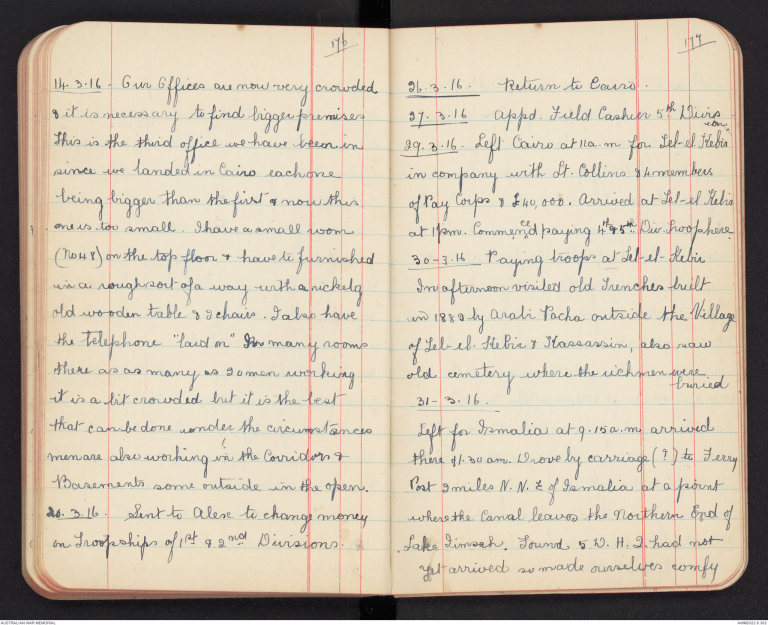 176
14.3.16 - Our Offices are now very crowded
& it is necessary to find bigger premises
This is the third office we have been in
since we landed in Cairo each one
being bigger than the first & now this
one is too small. I have a small room
(No 48) on the top floor & have it furnished
in a rough sort of a way with a rickety
old wooden table & 2 chairs. I also have
the telephone "laid on" In many rooms
there as as many as 20 men working
it is a bit crowded but it is the best
that can be done under the circumstances
men are also working in the Corridors &
Basements some outside in the open.
20.3.16. Sent to Alex to change money
on Troopships of 1st & 2nd Divisions.
177
26.3.16. Return to Cairo.
27.3.16 Appd. Field Cashier 5th Divis-
ion.
29.3.16. Left Cairo at 11 a.m for Tel-el-Kebir
in company with Lt. Collins & 4 members
of Pay Corps & £40,000. Arrived at Tel-el-Kebir
at 1 pm. Commenced paying 4th & 5th Div. Troops here.
30-3.16 Paying troops at Tel-el-Kebir
In afternoon visited old Trenches built
in 1882 by Arabi Pacha outside the Village
of Tel-el-Kebir & Kassassin, also saw
old cemetery where the men were
buried
31-3.16.
Left for Ismalia at 9.15 a.m arrived
there 11.30 am. Drove by carriage (?) to Ferry
Post 2 miles N.N.E of Ismalia at a point
where the Canal leaves the Northern End of
Lake Timsah. Found 5 D.H.Q. had not
yet arrived so made ourselves comfy
AUSTRALIAN WAR MEMORIAL